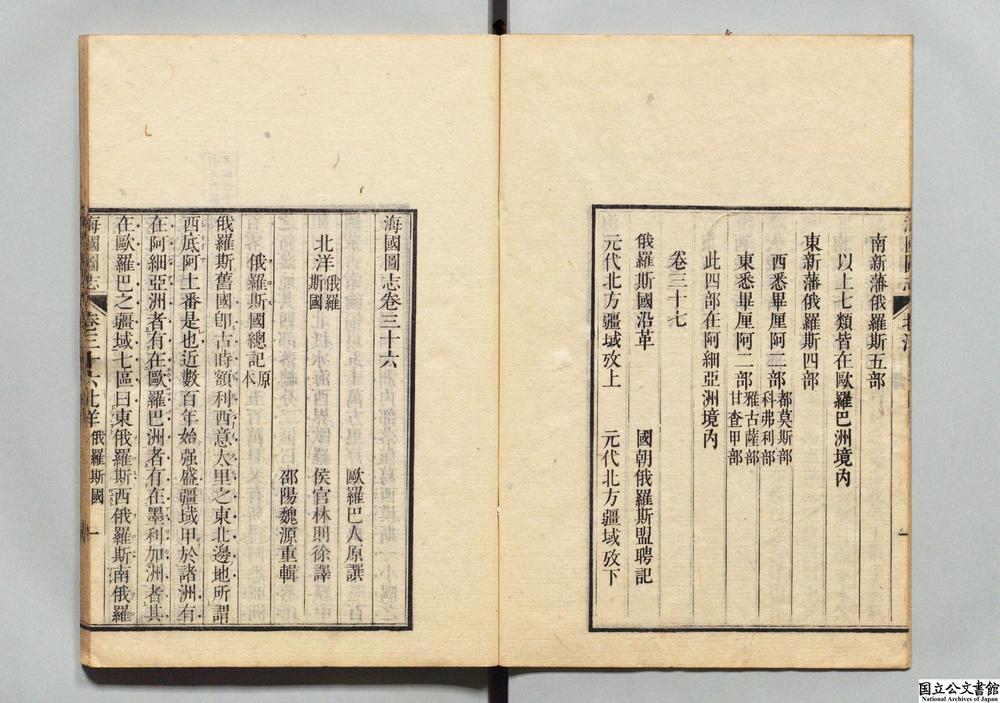 南新藩俄羅斯五部
以上七類皆在歐羅巴洲境內
東新藩俄羅斯四部
西悉畢厘阿二部 都莫斯部 科弗利部
東悉畢厘阿二部 雅古薩部 甘查甲部
此四部在阿細亞洲境內
卷三十七
俄羅斯國沿革 國朝俄羅斯盟聘記
元代北方疆域攷上 元代北方疆域攷下
海國圖志卷三十六
歐羅巴人原譔
北洋 俄羅斯國 侯官林則徐譯
邵陽魏源重輯
俄羅斯國總記 原本
俄羅斯舊國卽古時額利西意大里之東北邊地所謂
西底阿土番是也近數百年始强盛疆域甲於諸洲有
在阿細亞洲者有在歐羅巴洲者有在墨利加洲者其
在歐羅巴之疆域七區曰東俄羅斯西俄羅斯南俄羅
海國圖志 卷三十六 北洋 俄羅斯國 一
国立公文書館
National Archives of Japan